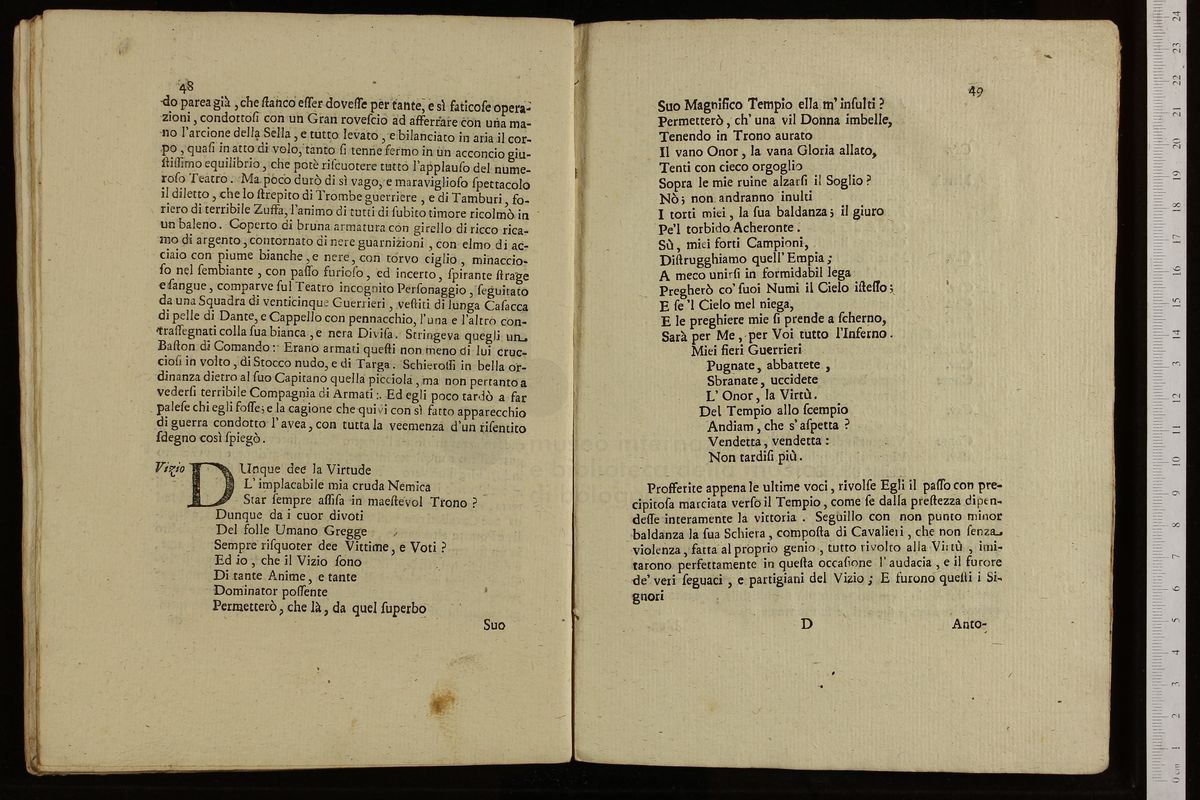 48
do parea già , che ſtanco eſſer doveſſe per tante, e sì faticoſe opera-
zioni , condottoſi con un Gran roveſcio ad afferrare con una ma-
no l'arcione della Sella , e tutto levato , e bilanciato in aria il cor-
po , quaſi in atto di volo, tanto ſi tenne fermo in un acconcio giu-
ſtiſſimo equilibrio , che potè riſcuotere tutto l'applauſo del nume-
roſo Teatro . Ma poco durò di sì vago, e maraviglioſo ſpettacolo
il diletto , che lo ſtrepito di Trombe guerriere , e di Tamburi , fo-
riero di terribile Zuffa, l'animo di tutti di ſubito timore ricolmò in
un baleno . Coperto di bruna armatura con girello di ricco rica-
mo di argento , contornato di nere guarnizioni , con elmo di ac-
ciaio con piume bianche , e nere, con torvo ciglio , minaccio-
ſo nel ſembiante , con paſſo furioſo , ed incerto, ſpirante ſtrage
e ſangue , comparve ſul Teatro incognito Perſonaggio , ſeguitato
da una Squadra di venticinque Guerrieri , veſtiti di lunga Caſacca
di pelle di Dante, e Cappello con pennacchio, l'una e l'altro con-
traſſegnati colla ſua bianca , e nera Diviſa . Stringeva quegli un
Baſton di Comando : Erano armati queſti non meno di lui cruc-
cioſi in volto , di Stocco nudo, e di Targa . Schieroſſi in bella or-
dinanza dietro al ſuo Capitano quella picciola , ma non pertanto a
vederſi terribile Compagnia di Armati : Ed egli poco tardò a far
paleſe chi egli foſſe; e la cagione che quivi con sì fatto apparecchio
di guerra condotto l' avea , con tutta la veemenza d'un riſentito
ſdegno così ſpiegò .
Vizio DUnque dee la Virtude
L' implacabile mia cruda Nemica
Star ſempre aſſiſa in maeſtevol Trono ?
Dunque da i cuor divoti
Del folle Umano Gregge
Sempre riſquoter dee Vittime, e Voti ?
Ed io , che il Vizio ſono
Di tante Anime, e tante
Dominator poſſente
Permetterò, che là, da quel ſuperbo
Suo
49
Suo Magnifico Tempio ella m' inſulti ?
Permetterò, ch' una vil Donna imbelle,
Tenendo in Trono aurato
Il vano Onor , la vana Gloria allato,
Tenti con cieco orgoglio
Sopra le mie ruine alzarſi il Soglio ?
Nò ; non andranno inulti
I torti miei , la ſua baldanza ; il giuro
Pe'l torbido Acheronte .
Sù, miei forti Campioni,
Diſtrugghiamo quell' Empia ;
A meco unirſi in formidabil lega
Pregherò co' ſuoi Numi il Cielo iſteſſo ;
E ſe 'l Cielo mel niega,
E le preghiere mie ſi prende a ſcherno,
Sarà per Me , per Voi tutto l'Inferno .
Miei fieri Guerrieri
Pugnate, abbattete ,
Sbranate, uccidete
L' Onor, la Virtù .
Del Tempio allo ſcempio
Andiam , che s' aſpetta ?
Vendetta, vendetta :
Non tardiſi più .
Profferite appena le ultime voci , rivolſe Egli il paſſo con pre-
cipitoſa marciata verſo il Tempio, come ſe dalla preſtezza dipen-
deſſe interamente la vittoria . Seguillo con non punto minor
baldanza la ſua Schiera, compoſta di Cavalieri , che non ſenza
violenza , fatta al proprio genio , tutto rivolto alla Virtù , imi-
tarono perfettamente in queſta occaſione l' audacia , e il furore
de' veri ſeguaci , e partigiani del Vizio ; E furono queſti i Si-
gnori
D Anto-